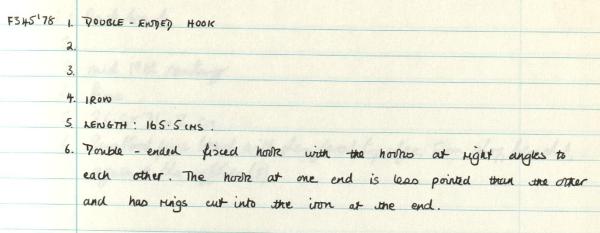 F345'78 1. DOUBLE-ENDED HOOK
2.
3.
4. IRON
5. LENGTH: 165.5 CMS.
6. Double-ended fixed hook with the hooks at right angles to
each other. The hook at one end is less pointed than the other
and has rings cut into the iron at the end.